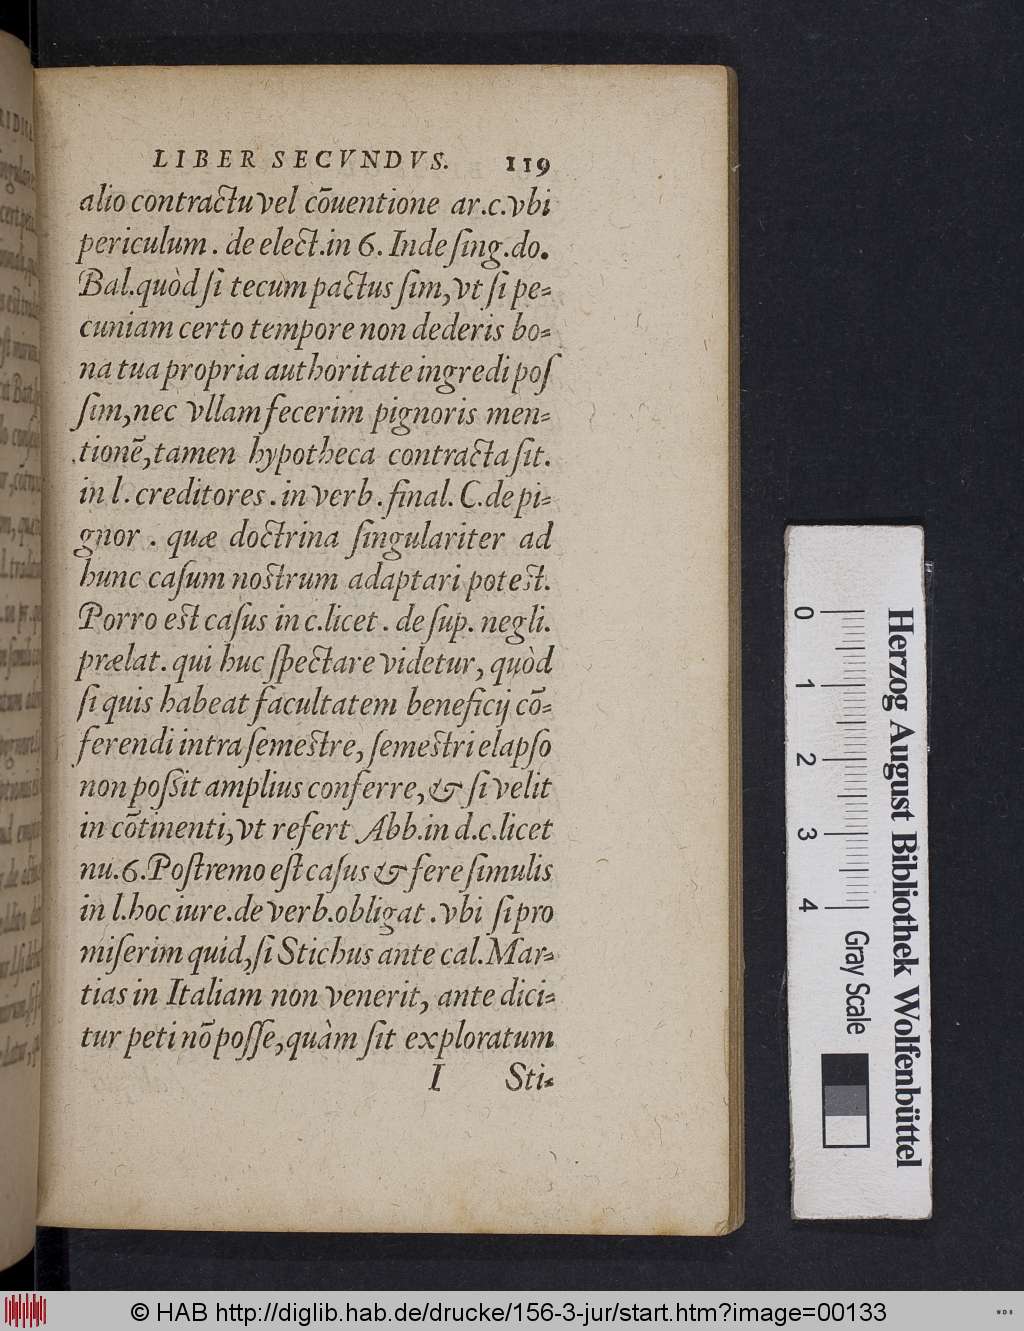 LIBER SECVNDVS. 119
alio contractu vel cōuentione ar.c.vbi
periculum. de elect.in 6. Inde sing.do.
Bal.quòd si tecum pactus sim, vt si pe-
cuniam certo tempore non dederis bo-
na tua propria authoritate ingredi pos
sim, nec vllam fecerim pignoris men-
tionē, tamen hypotheca contracta sit.
in l. creditores. in verb. final. C. de pi-
gnor. quæ doctrina singulariter ad
hunc casum nostrum adaptari potest.
Porro est casus in c.licet. de sup. negli.
prælat. qui huc spectare videtur, quòd
si quis habeat facultatem beneficij cō-
ferendi intra semestre, semestri elapso
non possit amplius conferre, & si velit
in cōtinenti, vt refert Abb.in d.c.licet
nu.6. Postremo est casus & fere simulis
in l.hoc iure.de verb.obligat. vbi si pro
miserim quid, si Stichus ante cal. Mar-
tias in Italiam non venerit, ante dici-
tur peti nō posse, quàm sit exploratum
I Sti-
Herzog August Bibliothek Wolfenbüttel
0 1 2 3 4 Gray Scale
© HAB http://diglib.hab.de/drucke/156-3-jur/start.htm?image=00133